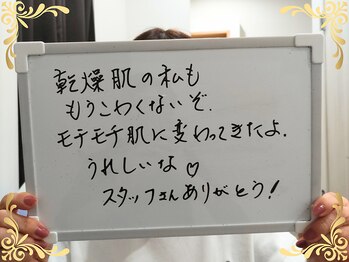 乾燥肌の私も
もうこわくないぞ.
モチモチ肌に変わってきたよ.
うれしいな♡
スタッフさんありがとう!